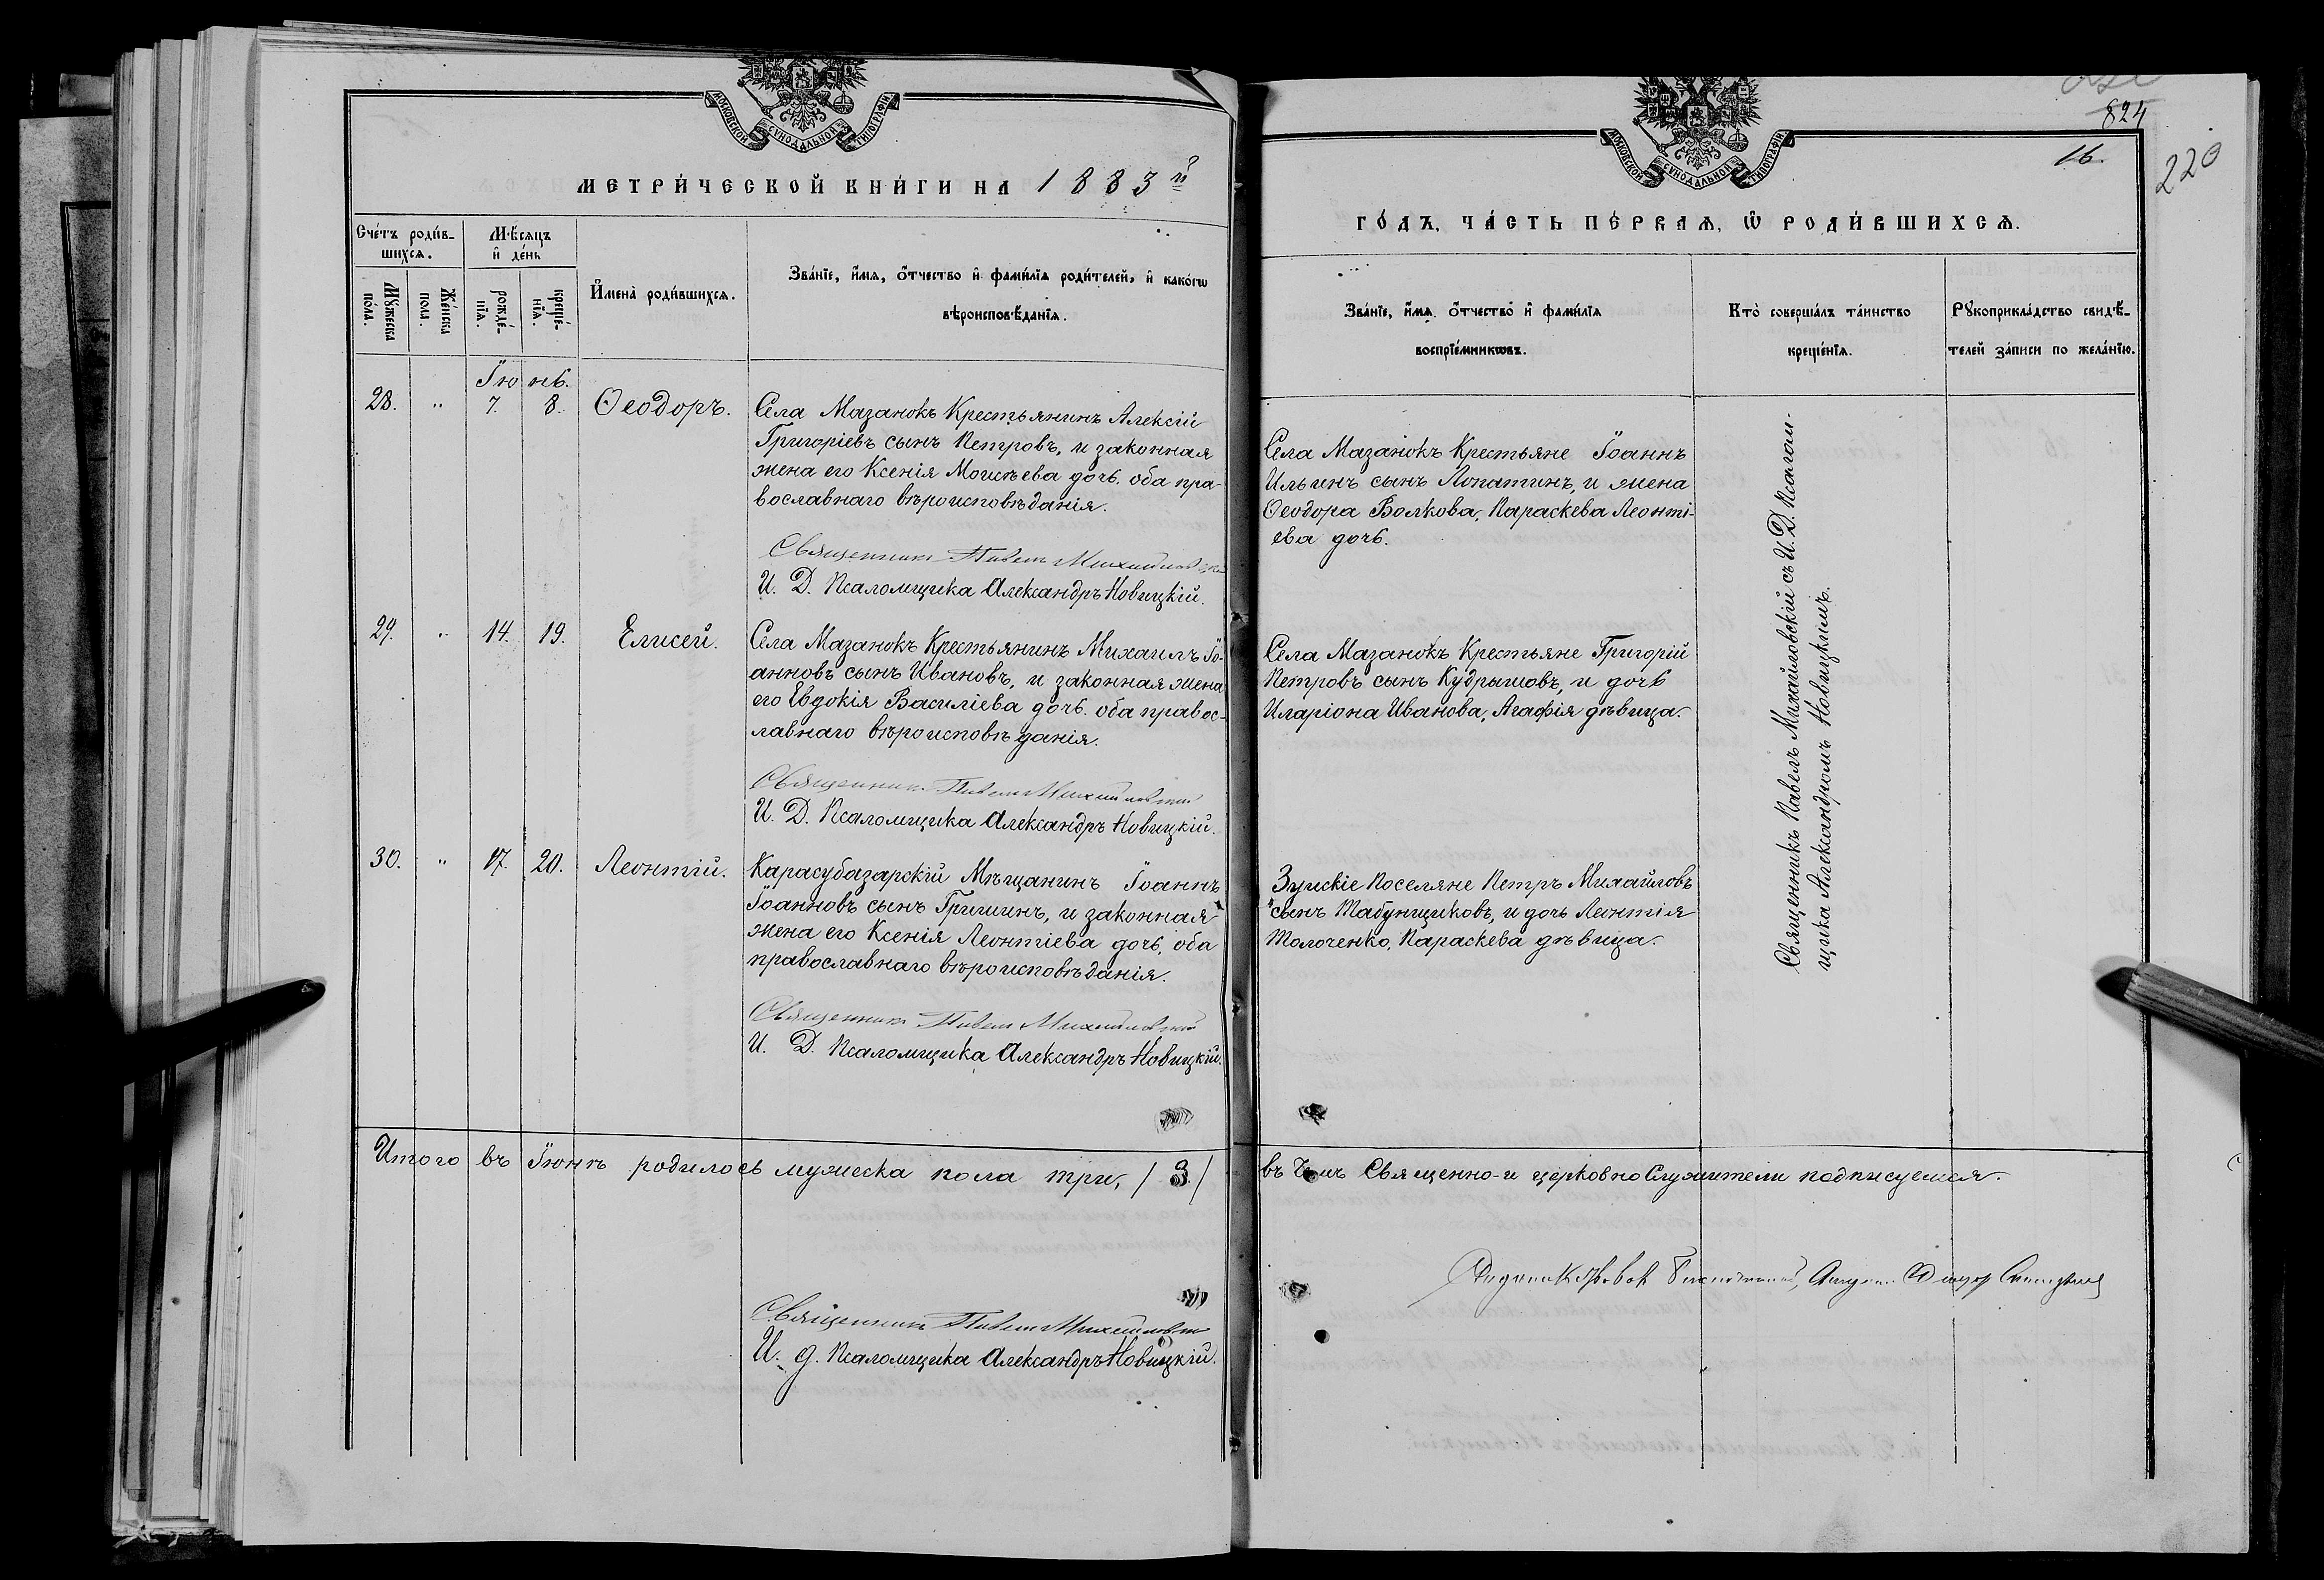 МОСКОВСКОЙ СѴНОДАЛЬНОЙ ТИПОГРАФІИ
МЕТРИ́ЧЕСКОЙ КНИ́ГИ НА 1883й
Сче́тъ роди́в-
шихся.
Мꙋ́жеска
по́ла.
Же́нска
пола.
Мѣ́сяцъ
и҆ де́нь
рожде́-
нїѧ.
креще́-
нїѧ.
И҆мена̀ роди́вшихсѧ.
Зва́нїе, и҆́мѧ, ѻ҆́тчество и҆ фами́лїѧ роди́телей, и҆ како́гѡ
вѣроисповѣ́данїѧ.
Іюнь.
28. " 7. 8. Ѳеодоръ.
Села Мазанокъ Крестьянинъ Алексій
Григоріевъ сынъ Петровъ, и законная
жена его Ксенія Моисѣева дочь. оба пра-
вославнаго вѣроисповѣданія.
Священникъ Павелъ Михайловскій
И. Д. Псаломщика Александръ Новицкій.
29. " 14. 19. Елисей.
Села Мазанокъ Крестьянинъ Михаилъ Іо-
анновъ сынъ Ивановъ, и законная жена
его Евдокія Василіева дочь. оба правос-
лавнаго вѣроисповѣданія.
Священникъ Павелъ Михайловскій
И. Д. Псаломщика Александръ Новицкій.
30. " 17. 20. Леонтій.
Карасубазарскій Мѣщанинъ Іоаннъ
Іоанновъ сынъ Гришинъ, и законная
жена его Ксенія Леонтіева дочь, оба
православнаго вѣроисповѣданія.
Священникъ Павелъ Михайловскій
И. Д. Псаломщика Александръ Новицкій.
Итого въ Іюнѣ родилось мужеска пола три, /3/
Священникъ Павелъ Михайловскій
И. д. Псаломщика Александръ Новицкій.
824
16.
220
МОСКОВСКОЙ СѴНОДАЛЬНОЙ ТИПОГРАФІИ
ГО́ДЪ, ЧА́СТЬ ПЕ́РВАѦ, Ѡ҆ РОДИ́ВШИХСѦ.
Зва́нїе, и҆́мѧ, ѻ҆́тчество и҆ фами́лїѧ
воспрїе́мникѡвъ.
Кто̀ соверша́лъ та́инство
креще́нїѧ.
Рꙋкоприкла́дство свидѣ́-
телей за́писи по жела́нїю.
Села Мазанокъ Крестьяне Іоаннъ
Ильинъ сынъ Лопатинъ, и жена
Ѳеодора Волкова, Параскева Леонті-
ева дочь.
Села Мазанокъ Крестьяне Григорій
Петровъ сынъ Кудрышовъ, и дочь
Иларіона Иванова, Агафія дѣвица.
Зуйскіе Поселяне Петръ Михайловъ
сынъ Табунщиковъ, и дочь Леонтія
Толоченко, Параскева дѣвица.
Священникъ Павелъ Михайловскій съ И. Д. Псалом-
щика Александромъ Новицкимъ.
въ Чемъ Священно-и церковно Служители подписуемся.